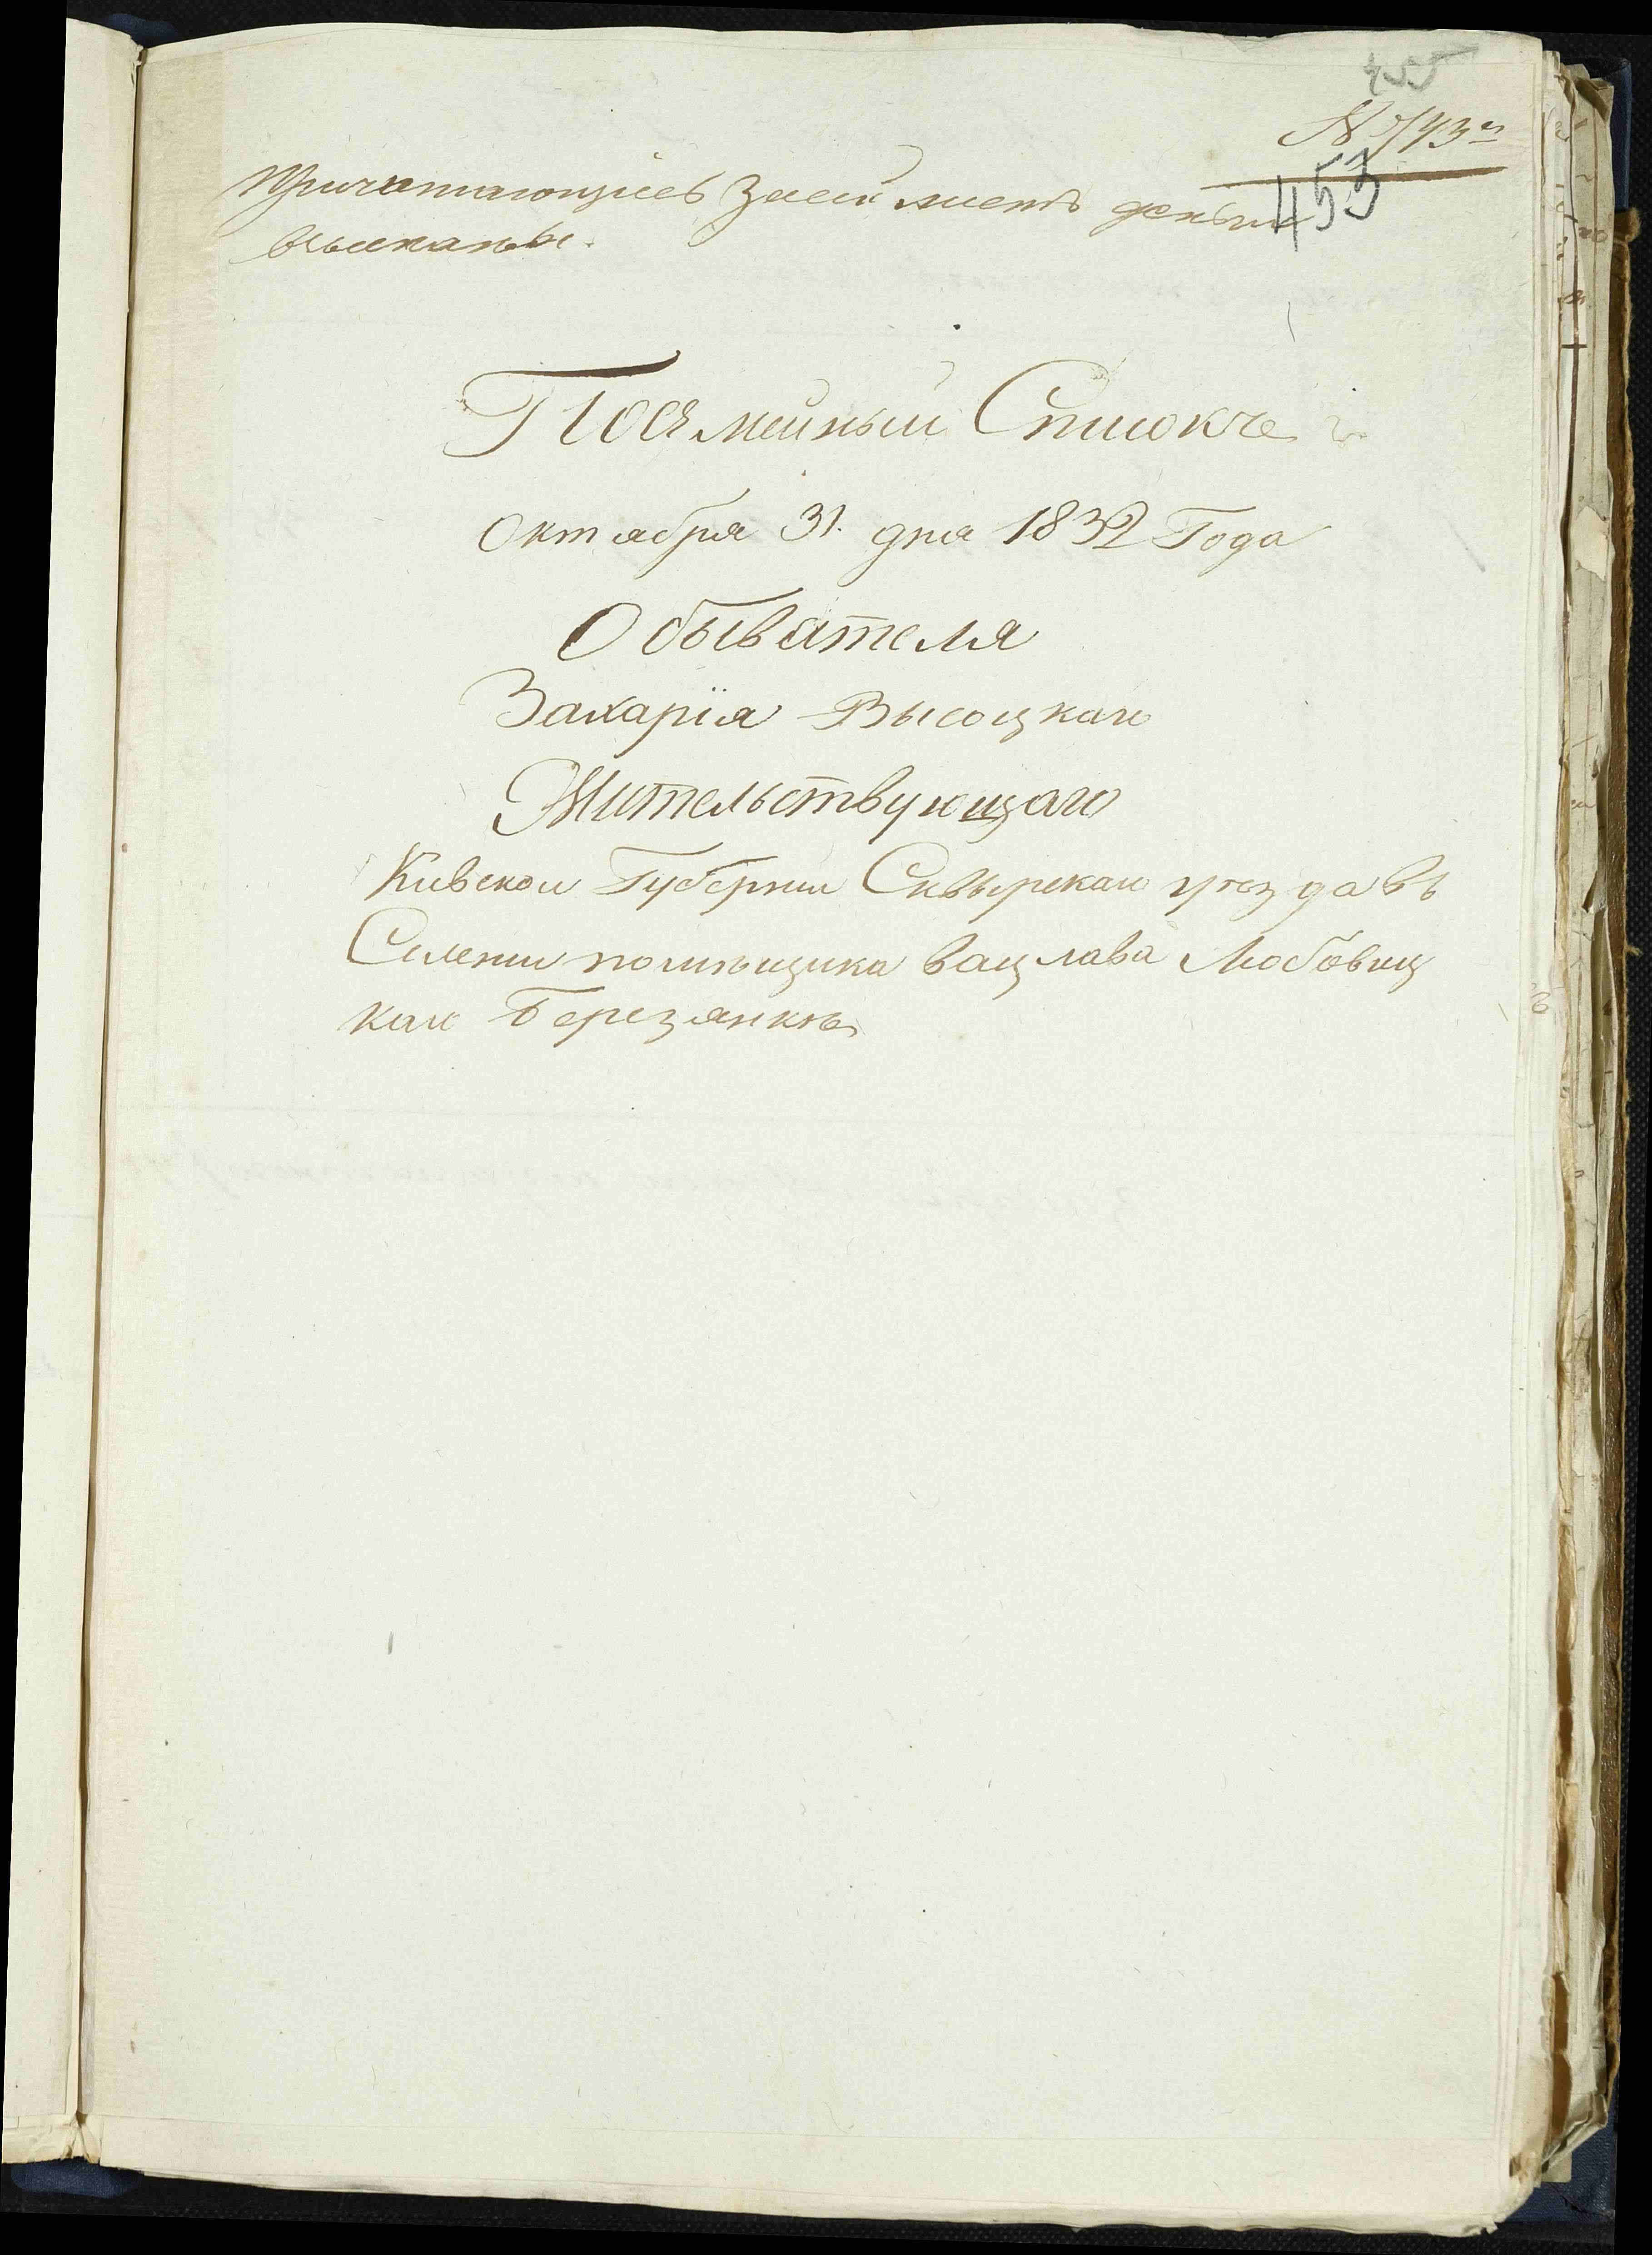 455
453
Причитающіесъ За сей листъ деньги
взысканы.
Посемейный Списокъ
Октября 31. дня 1832 Года
Обывателя
Захарія Высоцкаго
Жительствующаго
Кивской Губерніи Сквырскаго уезда въ
Селеніи помѣщика Вацлава Любовиц
каго Березянкѣ